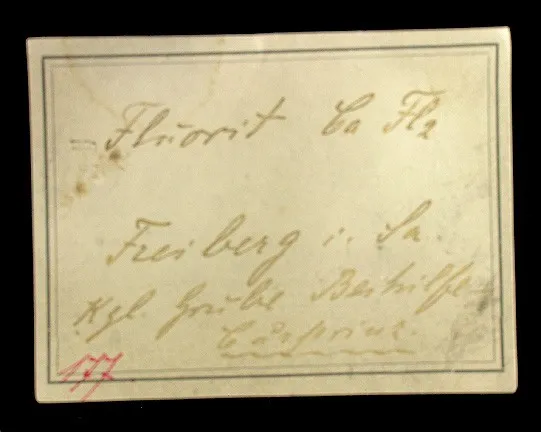 Fluorit Ca Fl2
Freiberg i. Sa.
Kgl. Grube Beihilfe
177